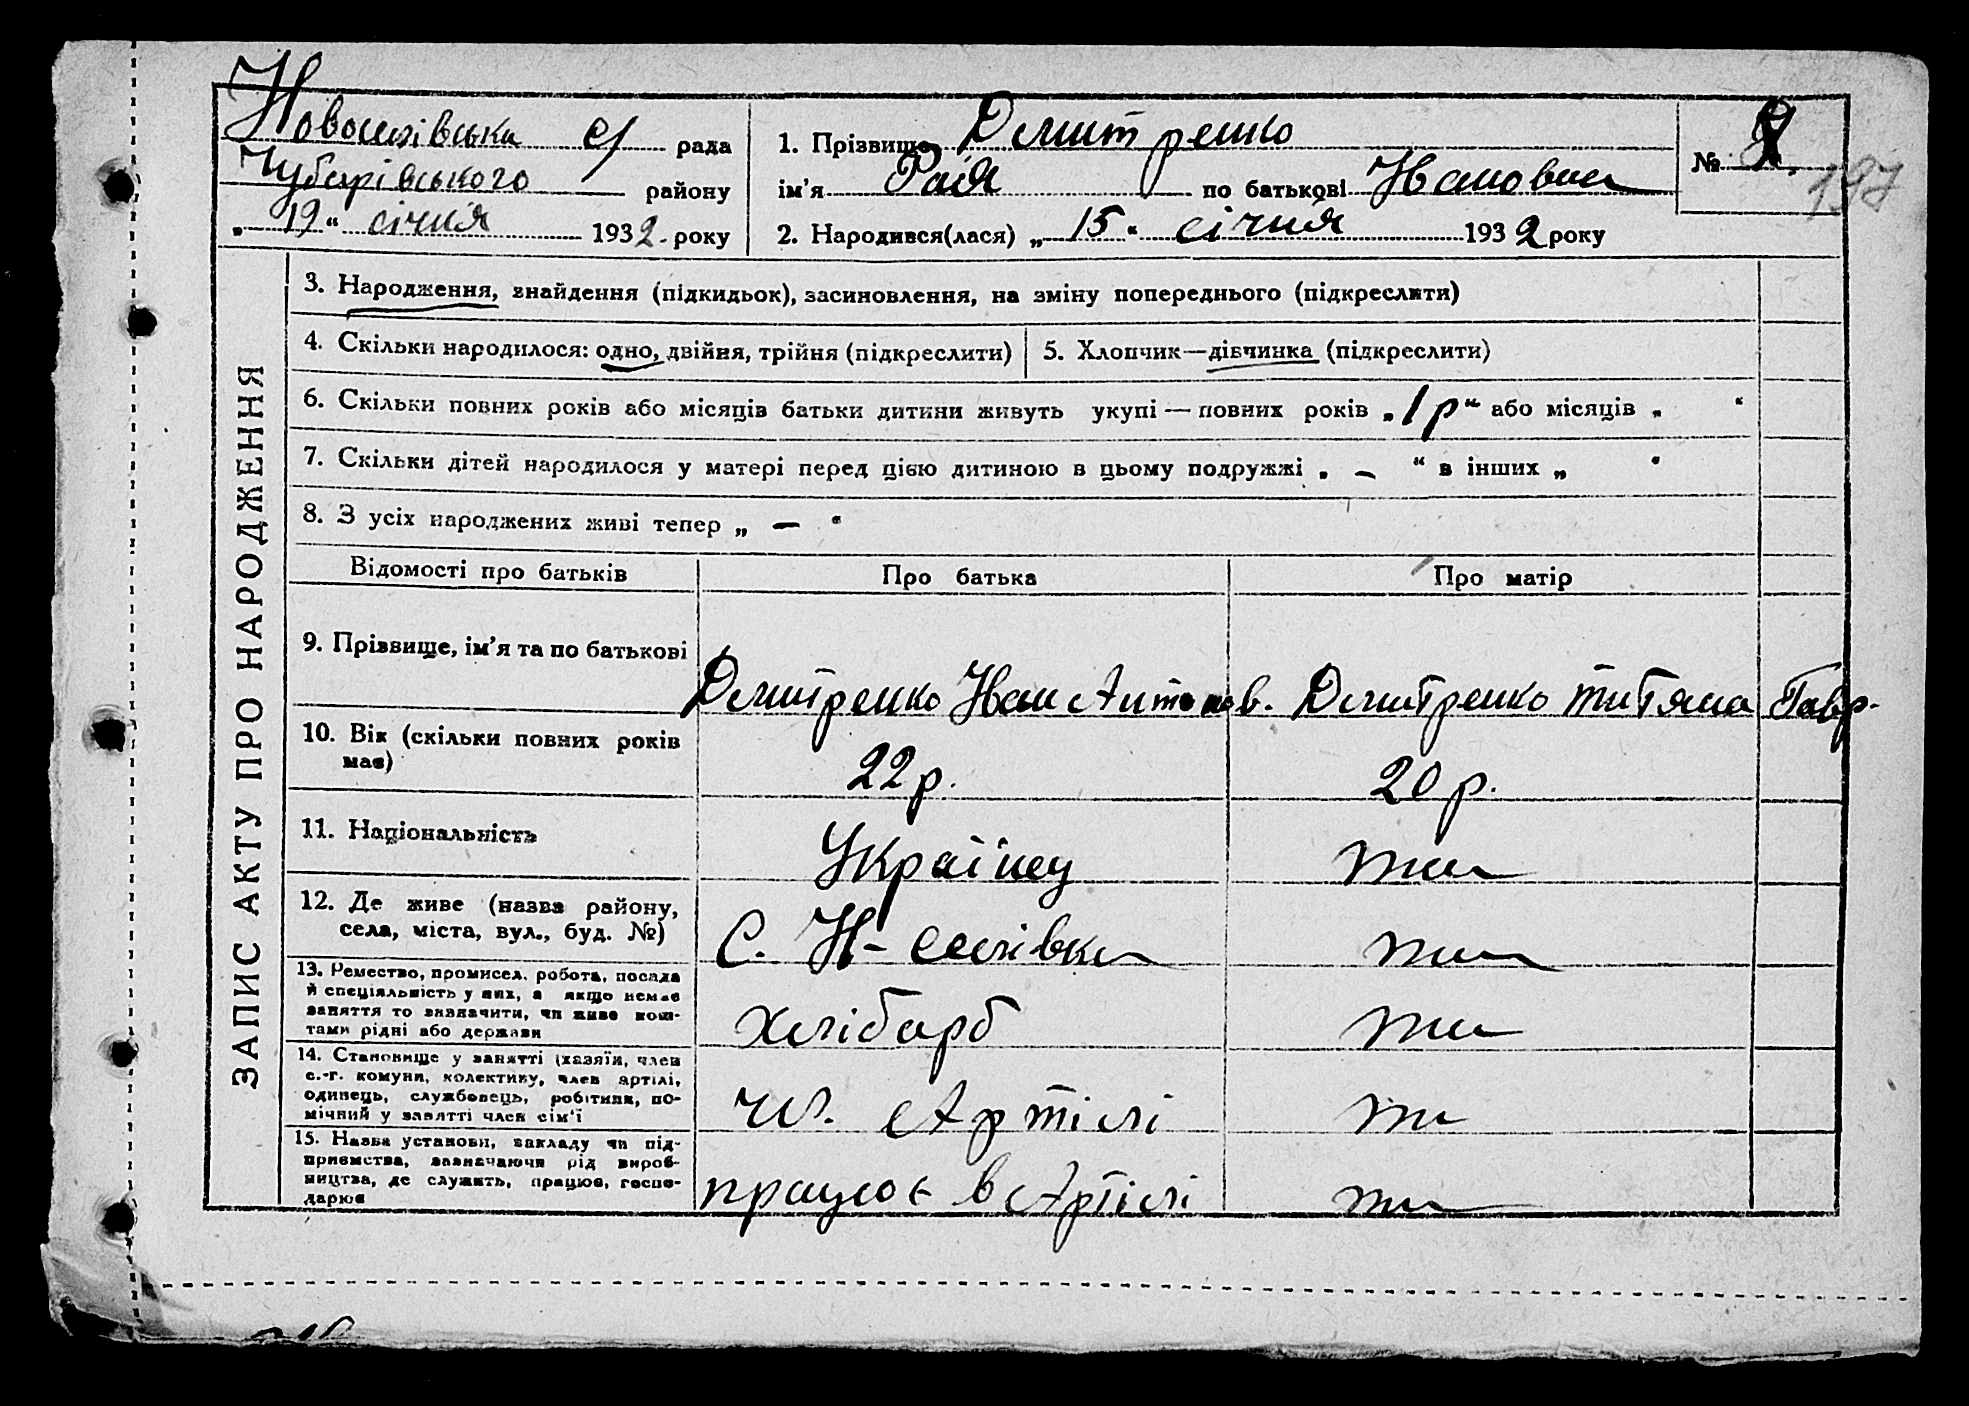 Новоселівська с/ рада
Чубарівського району
„ 19 “ січня 1932 року
1. Прізвище Дмитренко
ім'я Рая по батькові Івановна
2. Народився(лася) „ 15 “ січня 1932 року
№
197
ЗАПИС АКТУ ПРО НАРОДЖЕННЯ
3. Народження, знайдення (підкидьок), засиновлення, на зміну попереднього (підкреслити)
4. Скільки народилося: одно, двійня, трійня (підкреслити)
5. Хлопчик—дівчинка (підкреслити)
6. Скільки повних років або місяців батьки дитини живуть укупі — повних років „ 1 р “ або місяців „ “
7. Скільки дітей народилося у матері перед цією дитиною в цьому подружжі „ – “ в інших „ “
8. З усіх народжених живі тепер „ — “
Відомості про батьків Про батька Про матір
9. Прізвище, ім'я та по батькові
Дмитренко Іван Антонов. Дмитренко Титяна Гавр.
10. Вік (скільки повних років
має)
22 р. 20 р.
11. Національність
Українец тии
12. Де живе (назва району,
села, міста, вул., буд. №)
С. Н-селівка тии
13. Ремество, промисел, робота, посада
й спеціяльність у них, а якщо немає
заняття то зазначити, чи живе кош-
тами рідні або держави
хліборб ти
14. Становище у занятті (хазяїн, член
с.-г. комуни, колективу, член артілі,
одинець, службовець, робітник, по-
мічний у занятті член сім'ї
чл. Артілі ти
15. Назва установи, закладу чи під-
приємства, зазначаючи рід вироб-
ництва, де служить, працює, госпо-
дарює
працює в Артілі ти